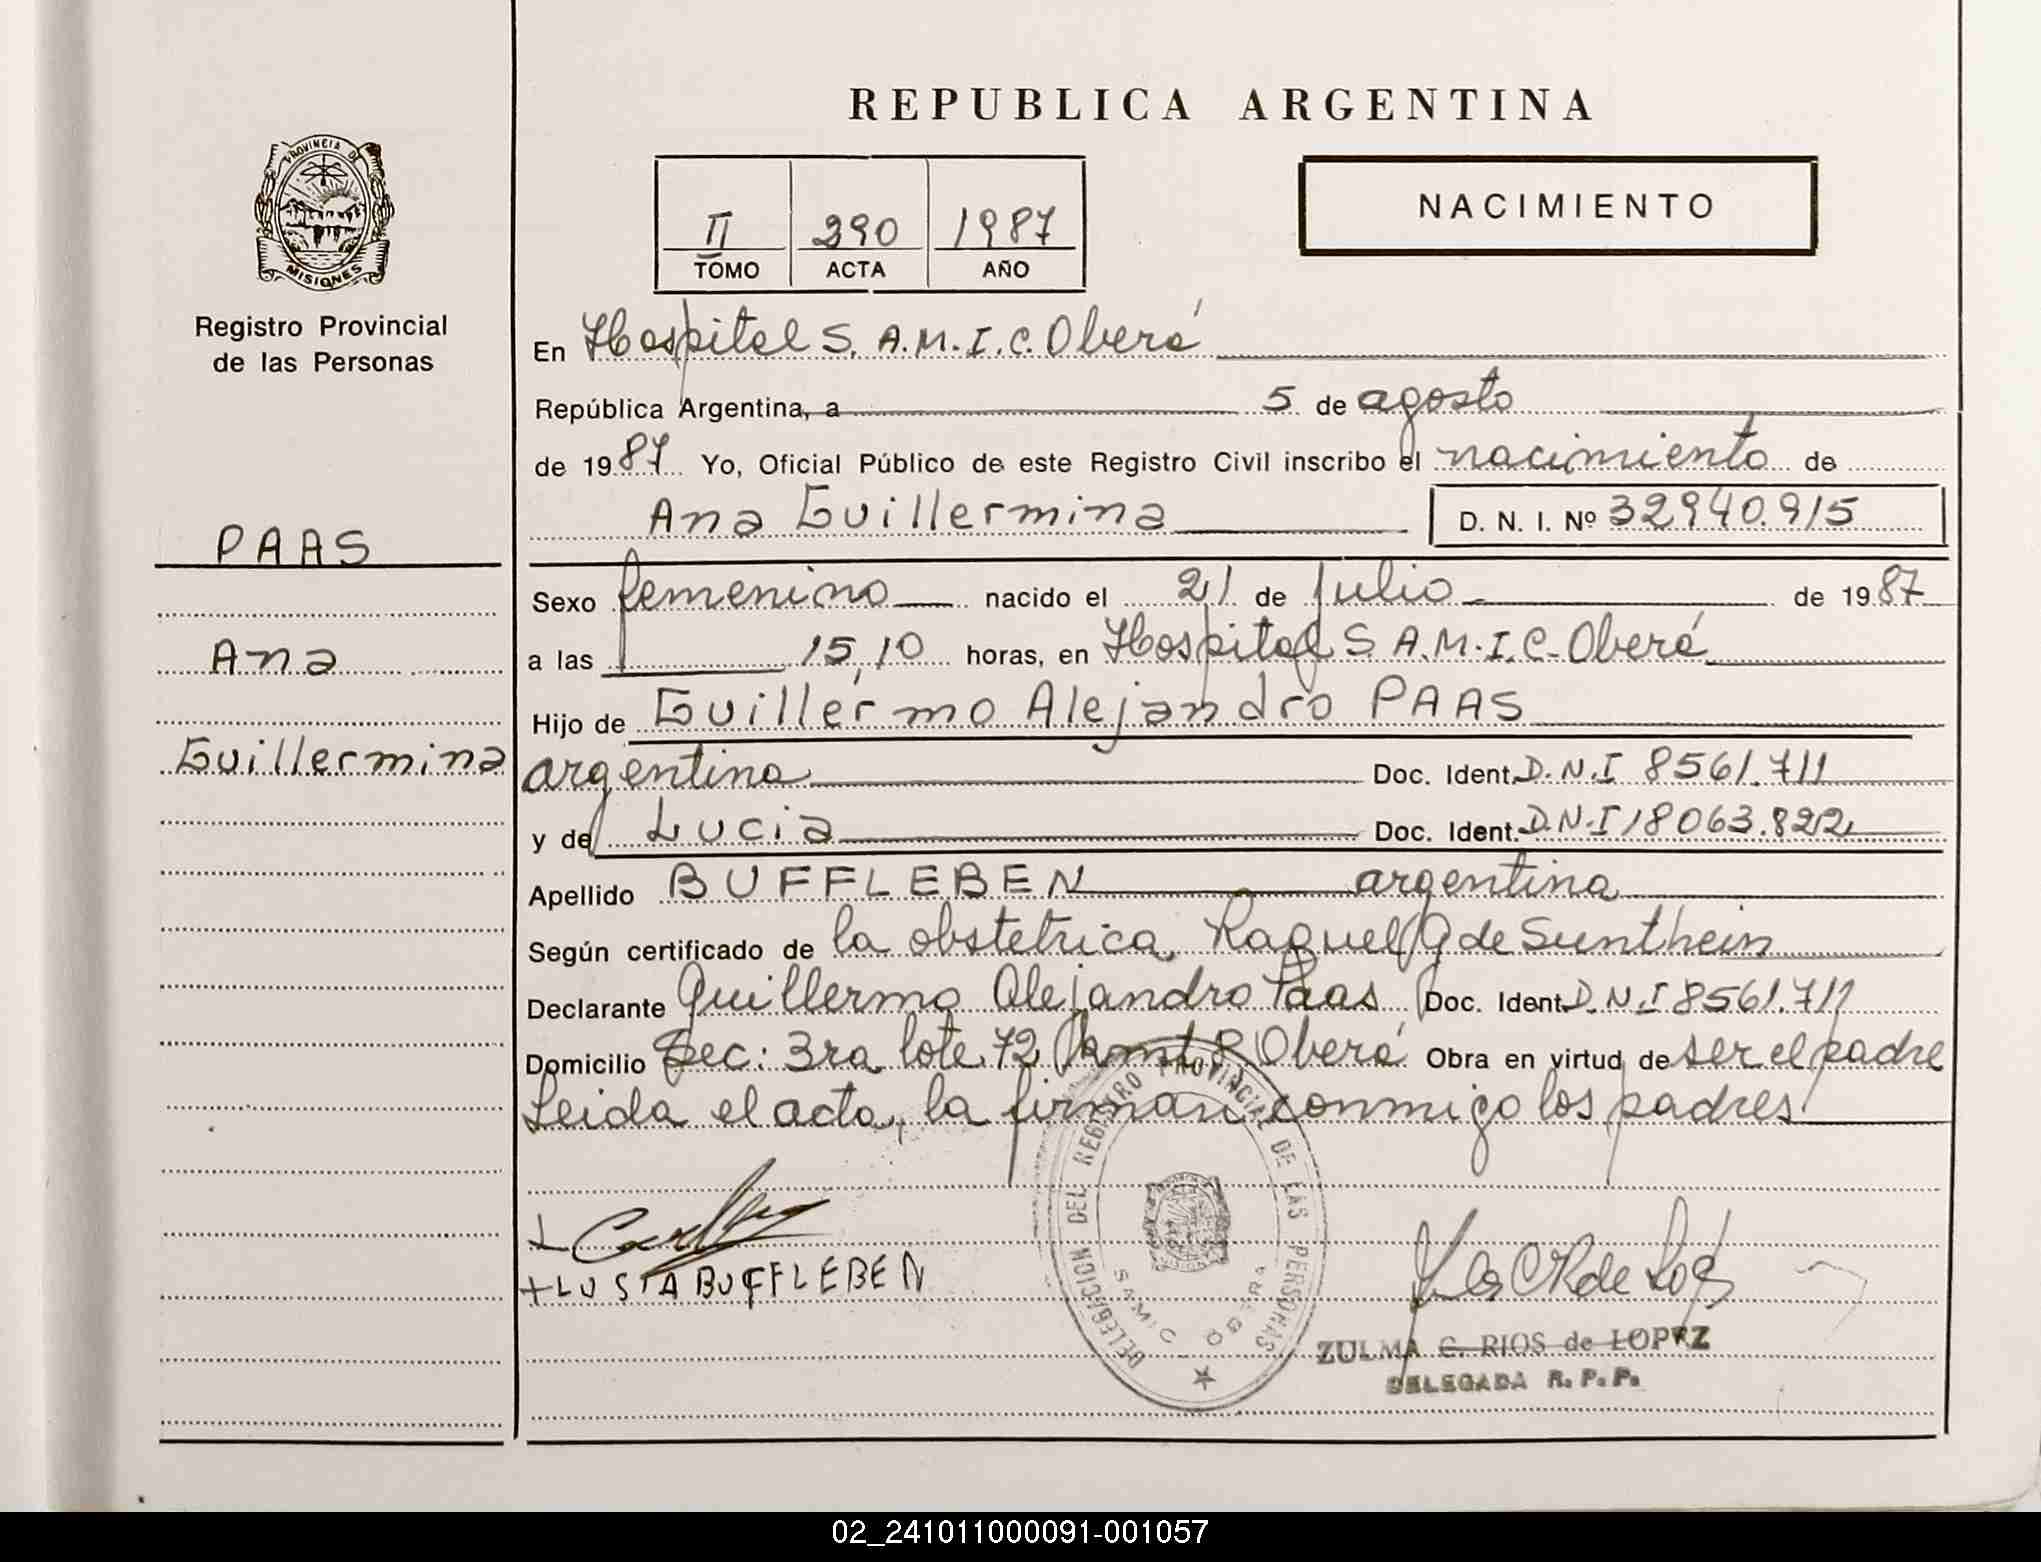 REPUBLICA ARGENTINA
PROVINCIA DE
MISIONES
Registro Provincial
de las Personas
II 290 1987
TOMO ACTA AÑO
NACIMIENTO
En Hospital S. A.M.I.C. Oberá
República Argentina, a 5 de agosto
de 1987 Yo, Oficial Público de este Registro Civil inscribo el nacimiento de
Ana Guillermina D. N. I. Nº 32940.915
PAAS
Ana
Guillermina
Sexo femenino nacido el 21 de julio de 1987
a las 15,10 horas, en Hospital S.A.M.I.C. Oberá
Hijo de Guillermo Alejandro PAAS
argentina Doc. Ident. D.N.I 8561.711
y de Lucia Doc. Ident. D.N.I 18063.822
Apellido BUFFLEBEN argentina
Según certificado de la obstetrica Raquel G de Sunthein
Declarante Guillermo Alejandro Paas Doc. Ident. D.N.I 8561.711
Domicilio Sec: 3ra lote 72 Oberá Obra en virtud de ser el padre
Leida el acta, la firman conmigo los padres
+ LUSIA BUFFLEBEN
DELEGACION DEL REGISTRO PROVINCIAL DE LAS PERSONAS
SAMIC OBERA
ZULMA C. RIOS de LOPEZ
DELEGADA R. P. P.
02_241011000091-001057